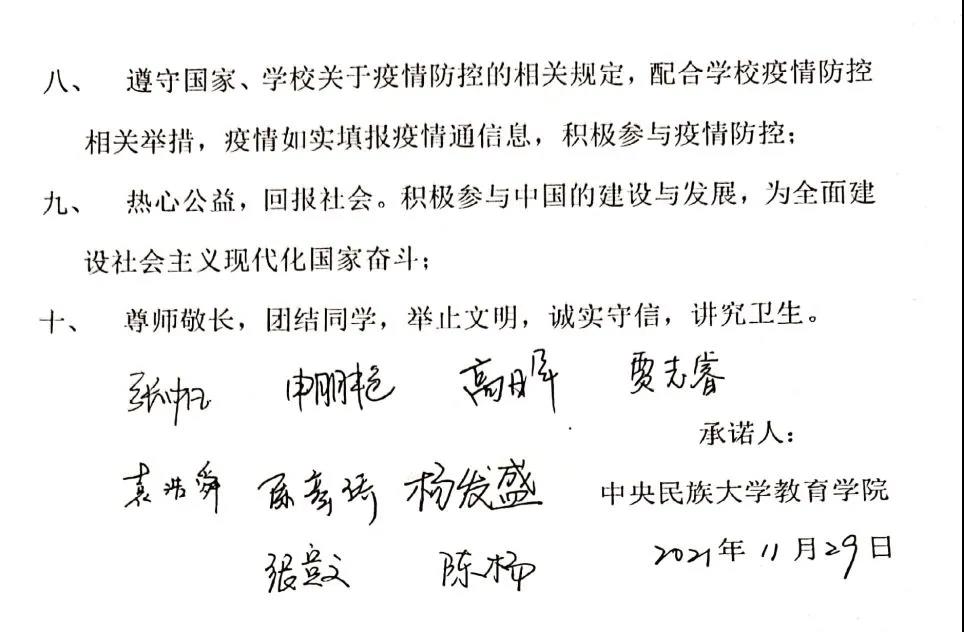 八、 遵守国家、学校关于疫情防控的相关规定，配合学校疫情防控
相关举措，疫情如实填报疫情通信息，积极参与疫情防控；
九、 热心公益，回报社会。积极参与中国的建设与发展，为全面建
设社会主义现代化国家奋斗；
十、 尊师敬长，团结同学，举止文明，诚实守信，讲究卫生。
贾志睿
承诺人：
袁浩舜 杨发盛 中央民族大学教育学院
陈杨 2021年11月29日